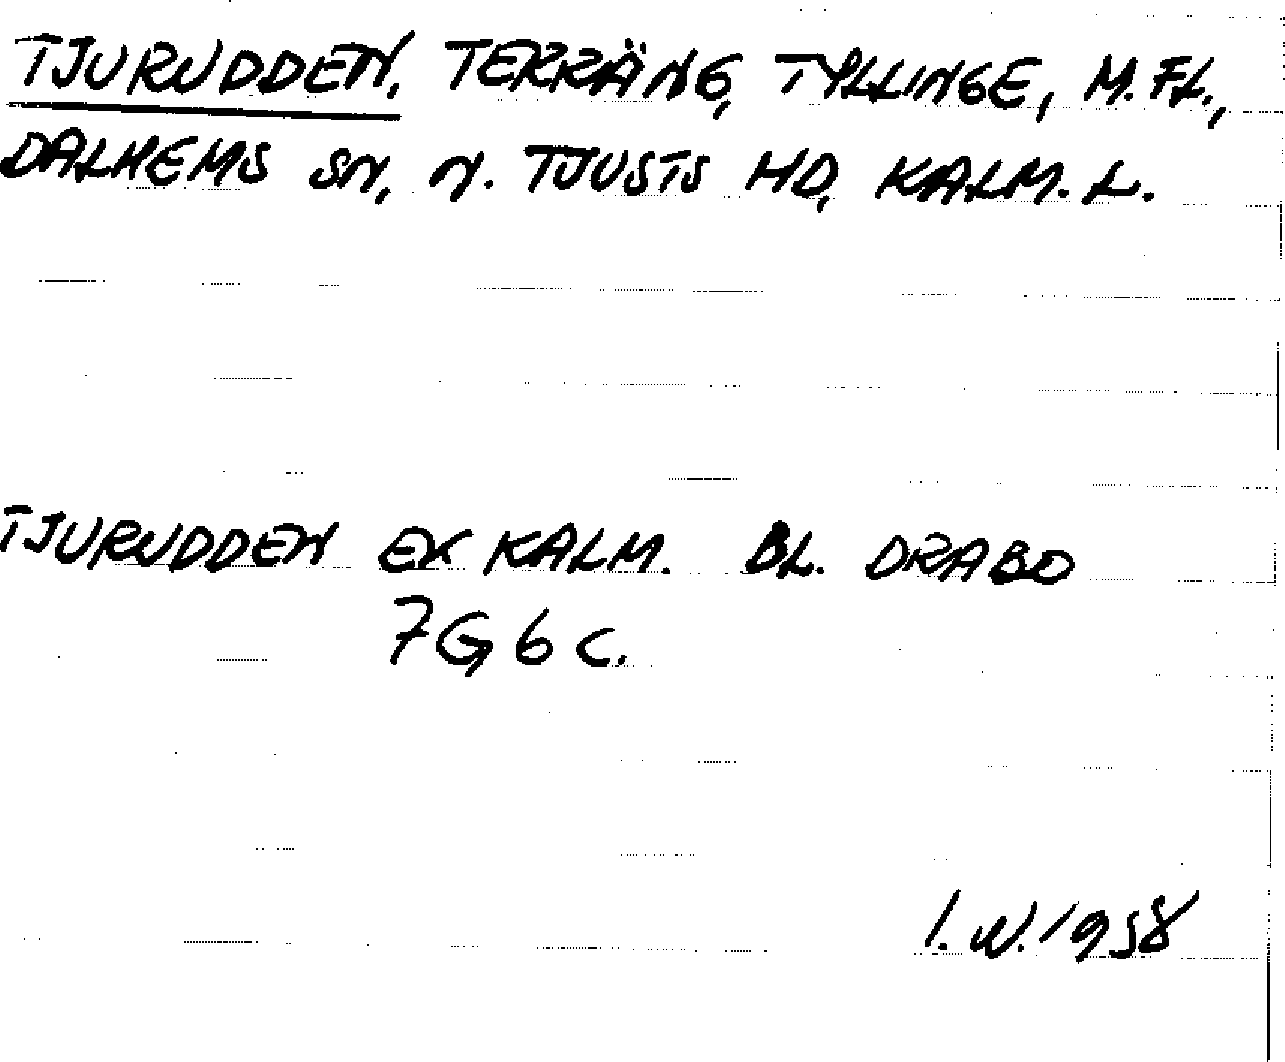 TJURUDDEN, TERRÄNG, TYLLINGE, M.FL.,
DALHEMS SN, N. TJUSTS HD, KALM. L.
TJURUDDEN EK KALM. BL. DRABO
7G 6 C.
I. W. 1958